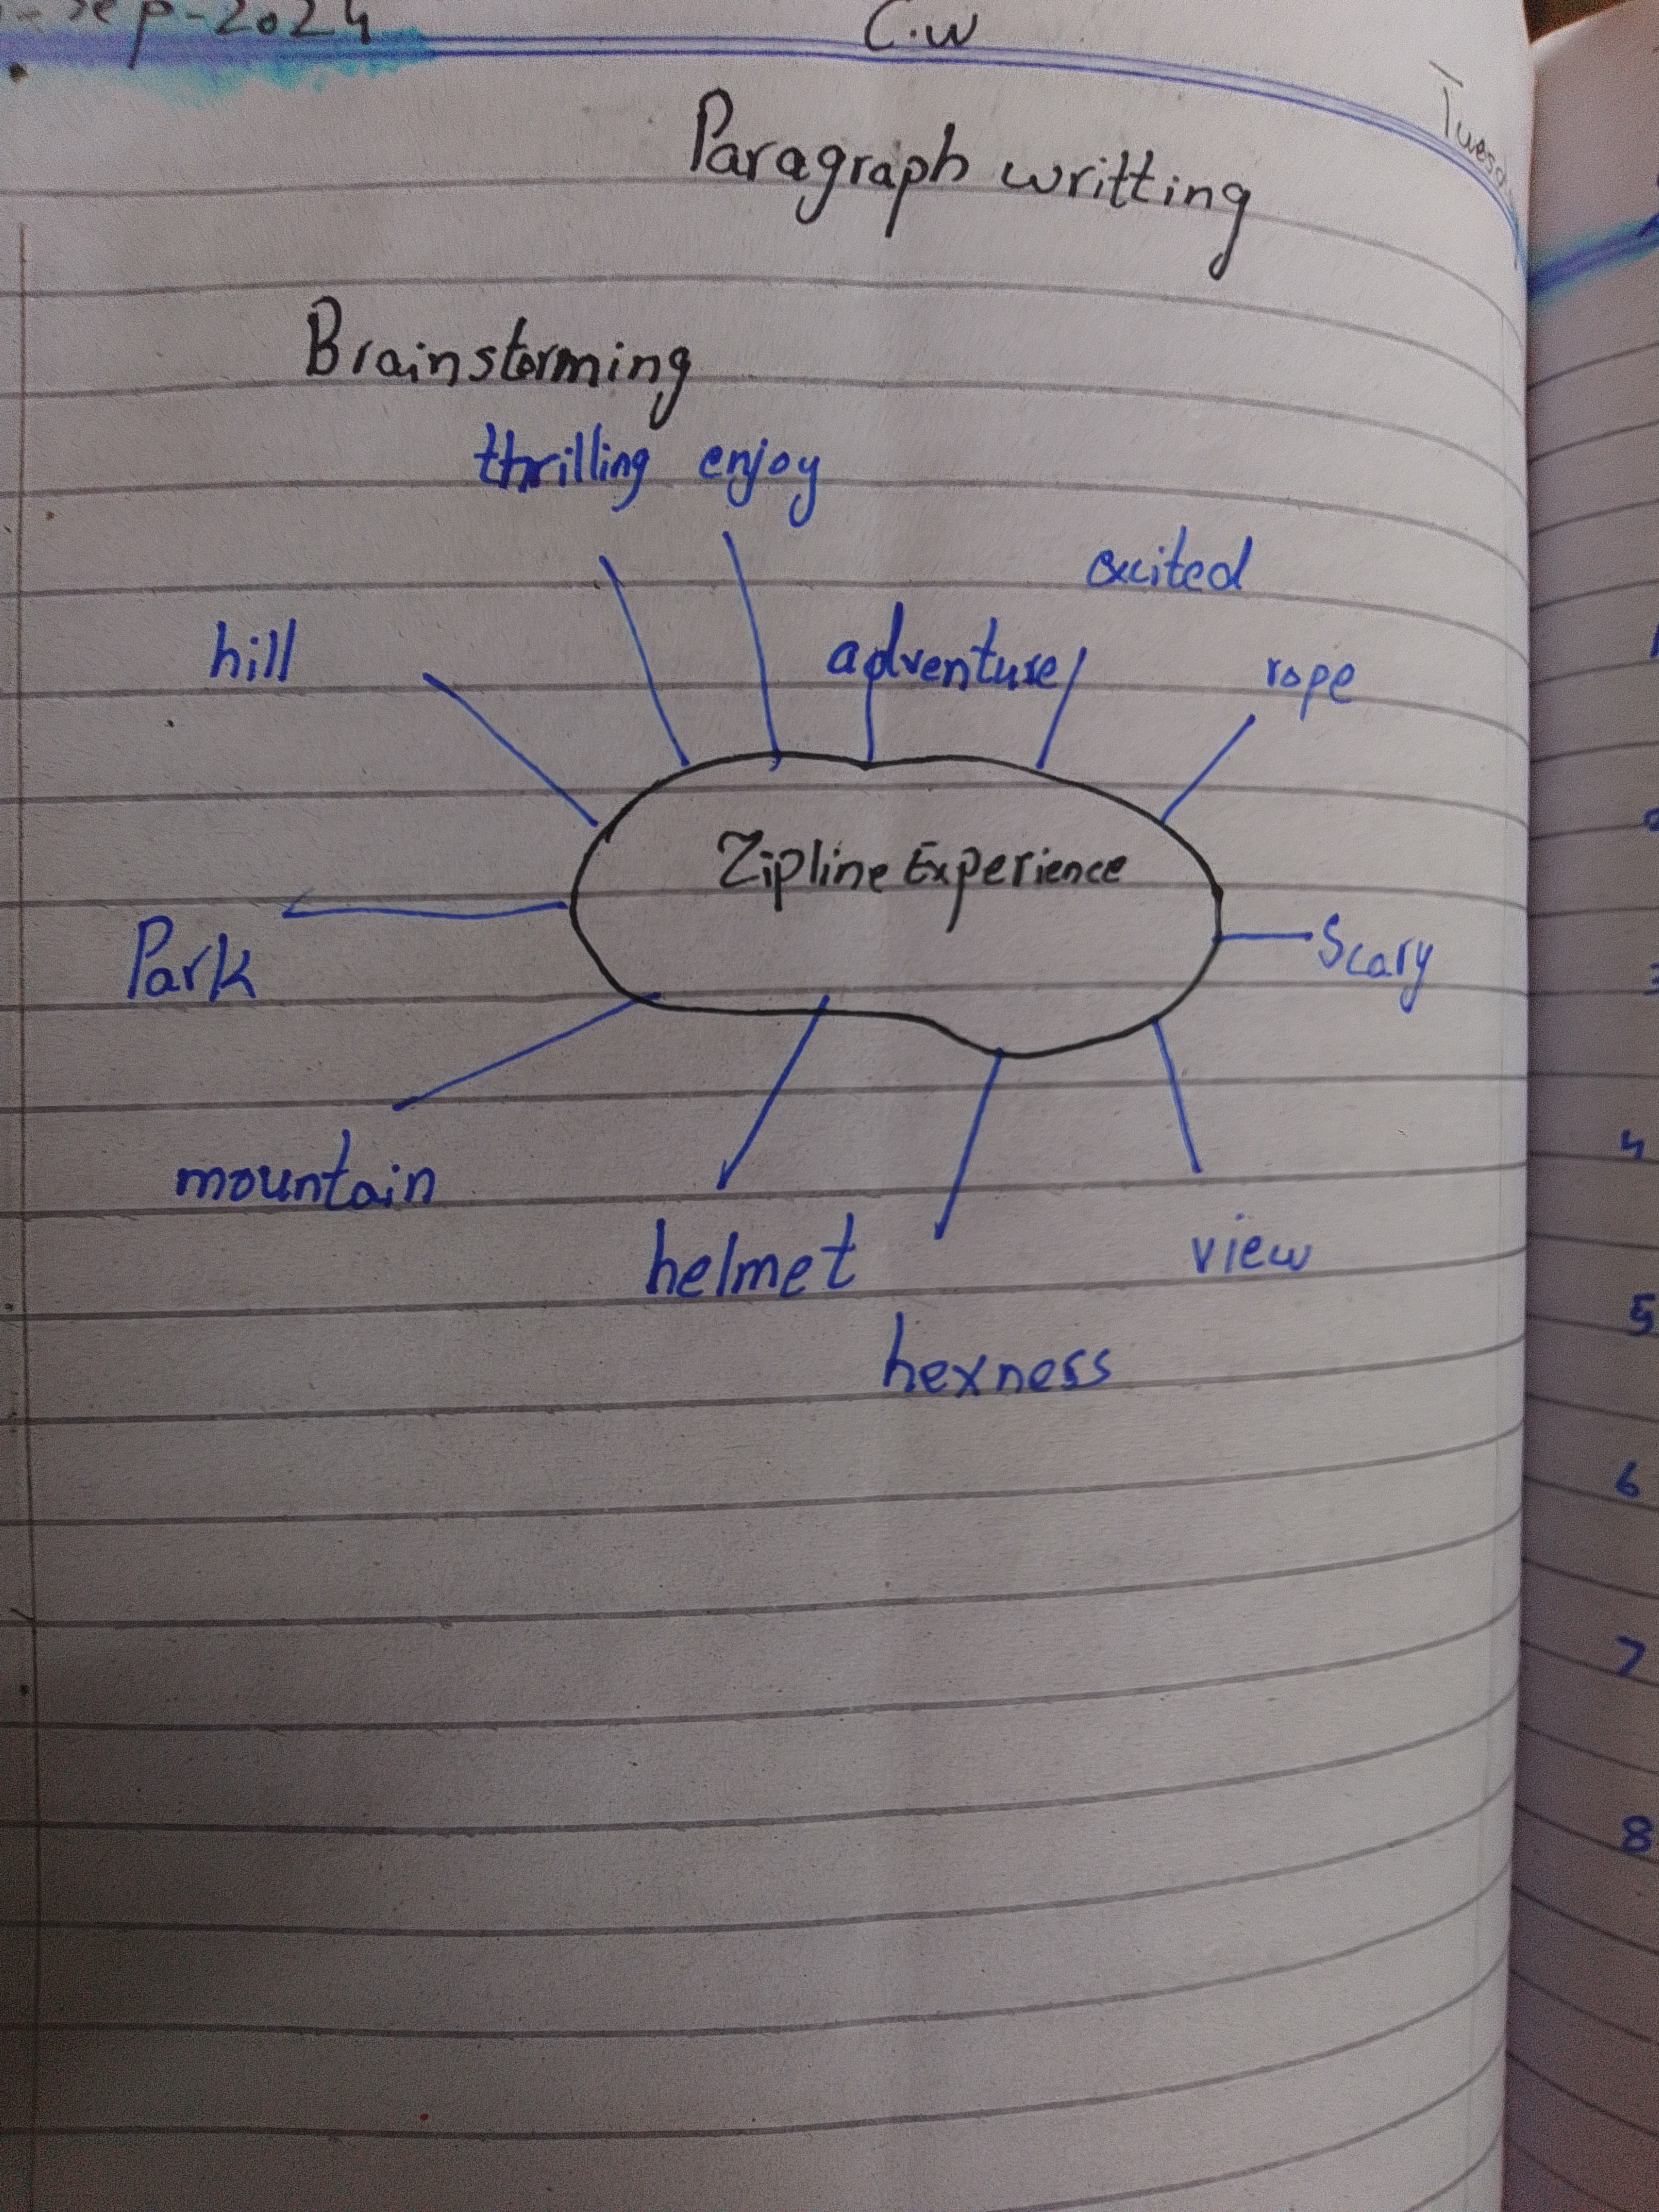 Sep-2024 C.W
Tuesd
Paragraph writting
Brainstorming
thrilling enjoy
excited
hill adventure rope
Zipline Experience
Park Scary
mountain
helmet view
hexness
4
5
6
7
8